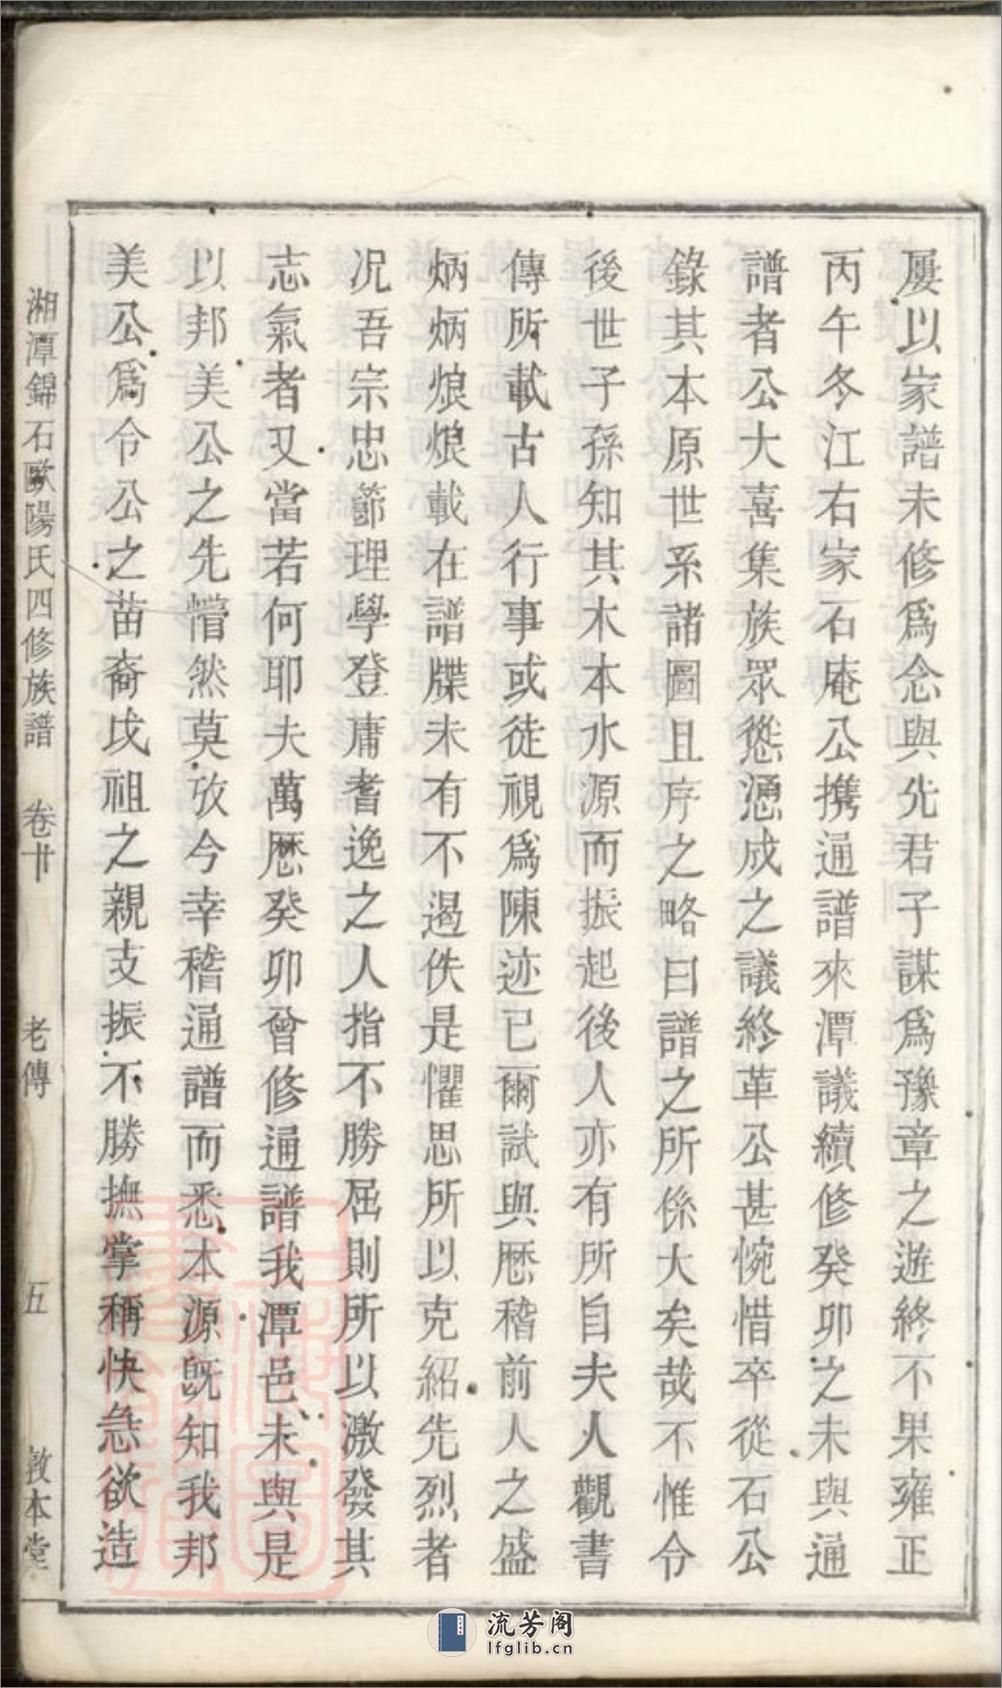 屢以家譜未修爲念與先君子謀爲豫章之遊終不果雍正
丙午冬江右家石庵公携通譜來潭議續修癸卯之未與通
譜者公大喜集族眾慫慂成之議終革公甚惋惜卒從石公
錄其本原世系諸圖且序之略曰譜之所係大矣哉不惟令
後世子孫知其木本水源而振起後人亦有所自夫人觀書
傳所載古人行事或徒視爲陳迹已爾試與歷稽前人之盛
炳炳烺烺載在譜牒未有不遏佚是懼思所以克紹先烈者
况吾宗忠節理學登庸耆逸之人指不勝屈則所以激發其
志氣者又當若何耶夫萬歷癸卯曾修通譜我潭邑未與是
以邦美公之先懵然莫攷今幸稽通譜而悉本源旣知我邦
美公爲令公之苗裔戉祖之親支振不勝撫掌稱快急欲造
湘潭錦石歐陽氏四修族譜 卷卄 老傳 五 敦本堂
流芳阁
lfglib.cn